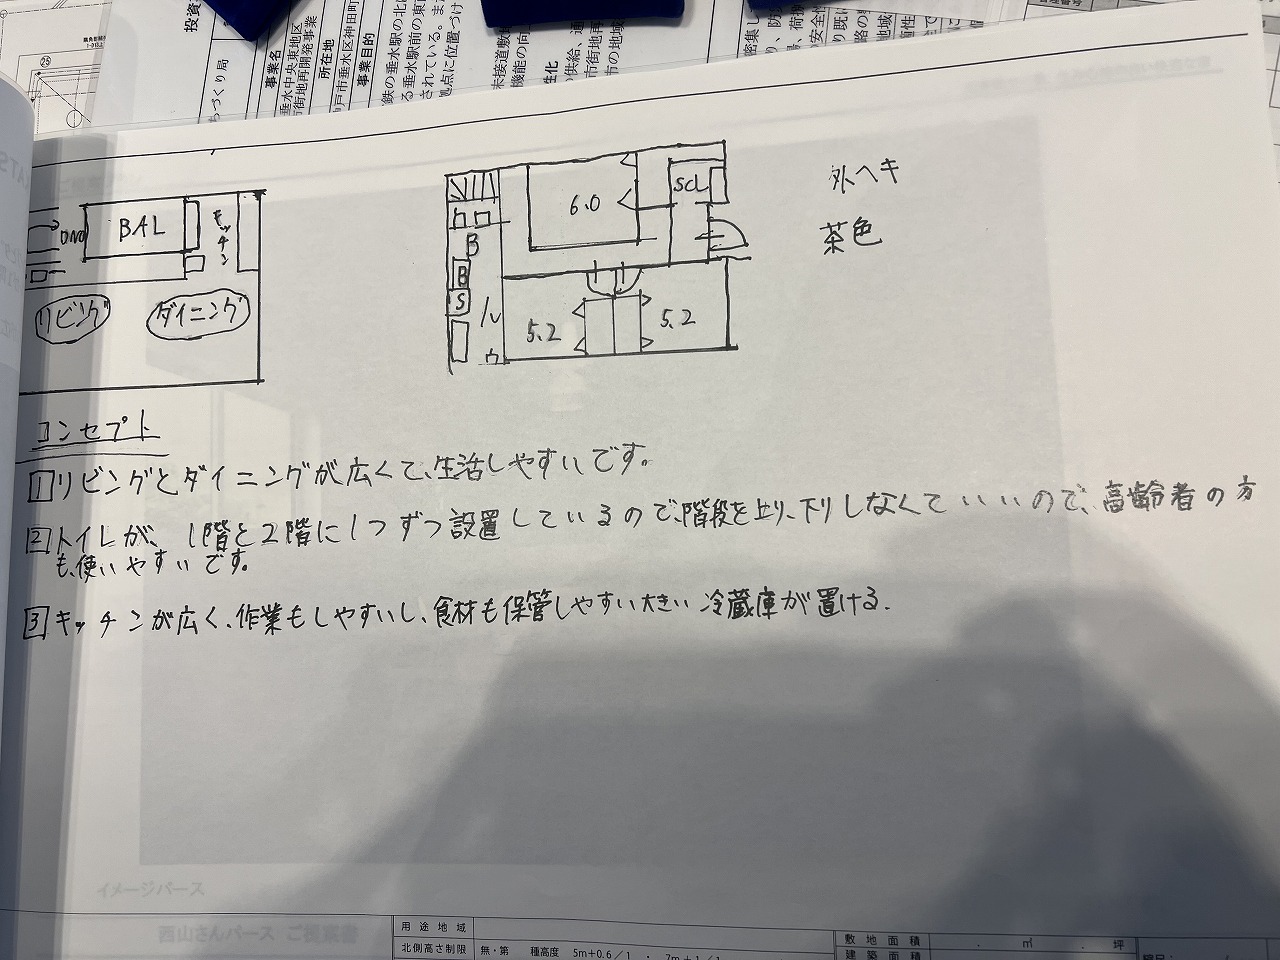 事業名
垂水中央東地区
市街地再開発事業
所在地
神戸市垂水区神田町
事業目的
BAL
キッチン
リビング
ダイニング
6.0
SCL
B
B
S
ル
ウ
5.2
5.2
外ヘキ
茶色
コンセプト
1 リビングとダイニングが広くて、生活しやすいです。
2 トイレが、1階と2階に1つずつ設置しているので、階段を上り、下りしなくていいので、高齢者の方
も、使いやすいです。
3 キッチンが広く、作業もしやすいし、食材も保管しやすい大きい冷蔵庫が置ける.
イメージパース
西山さんパース ご提案書
用途地域
北側高さ制限 無・第 種高度 5m+0.6/1 ・ 7m+1/1
敷地面積 ・ ㎡ ・ 坪
建築面積